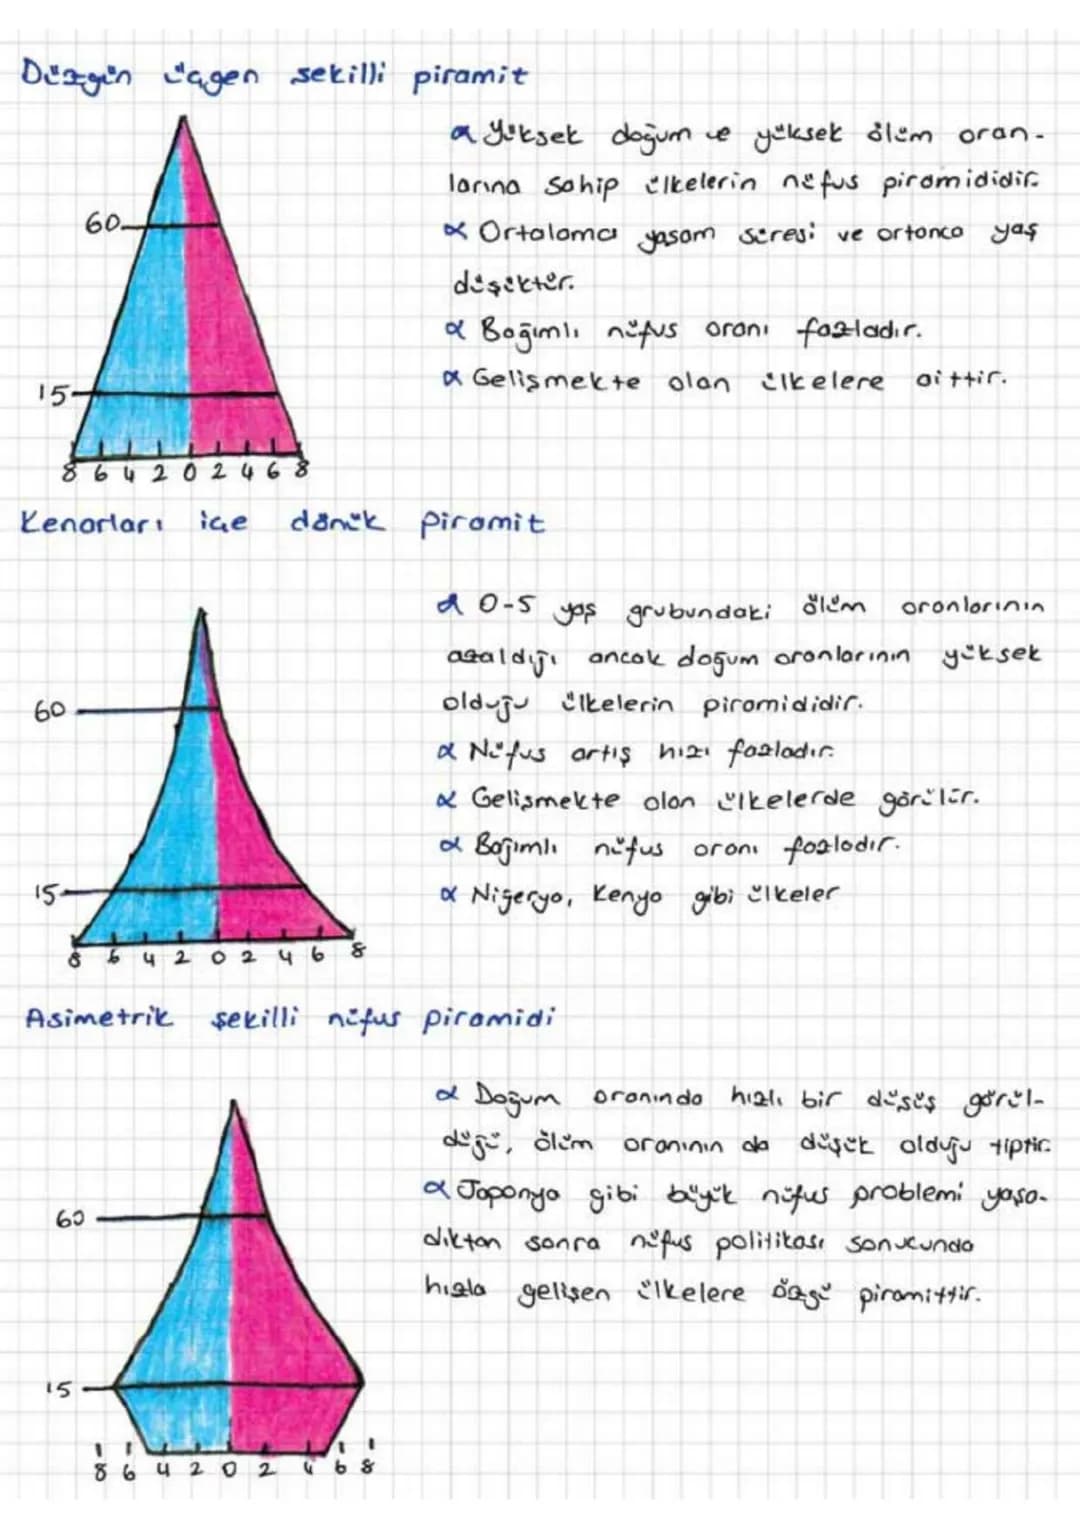 Düzgün üçgen şekilli piramit
α Yüksek doğum ve yüksek ölüm oran-
larına sahip ülkelerin nüfus piramididir.
60
α Ortalama yaşam süresi ve ortanca yaş
düşüktür.
α Bağımlı nüfus oranı fazladır.
15
α Gelişmekte olan ülkelere aittir.
8 6 4 2 0 2 4 6 8
Kenarları içe dönük piramit
α 0-5 yaş grubundaki ölüm oranlarının
azaldığı ancak doğum oranlarının yüksek
60
olduğu ülkelerin piramididir.
α Nüfus artış hızı fazladır.
α Gelişmekte olan ülkelerde görülür.
α Bağımlı nüfus oranı fazladır.
15
α Nijerya, Kenya gibi ülkeler
8 6 4 2 0 2 4 6 8
Asimetrik şekilli nüfus piramidi
α Doğum oranında hızlı bir düşüş görül-
düğü, ölüm oranının da düşük olduğu tiptir.
α Japonya gibi büyük nüfus problemi yaşa-
60
dıktan sonra nüfus politikası sonucunda
hızla gelişen ülkelere özgü piramittir.
15
8 6 4 2 0 2 4 6 8